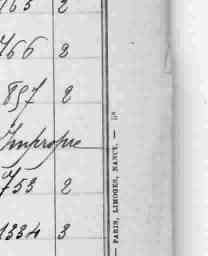 763 2
766 8
897 2
Impropre
753 2
1334 3
— PARIS, LIMOGES, NANCY. —